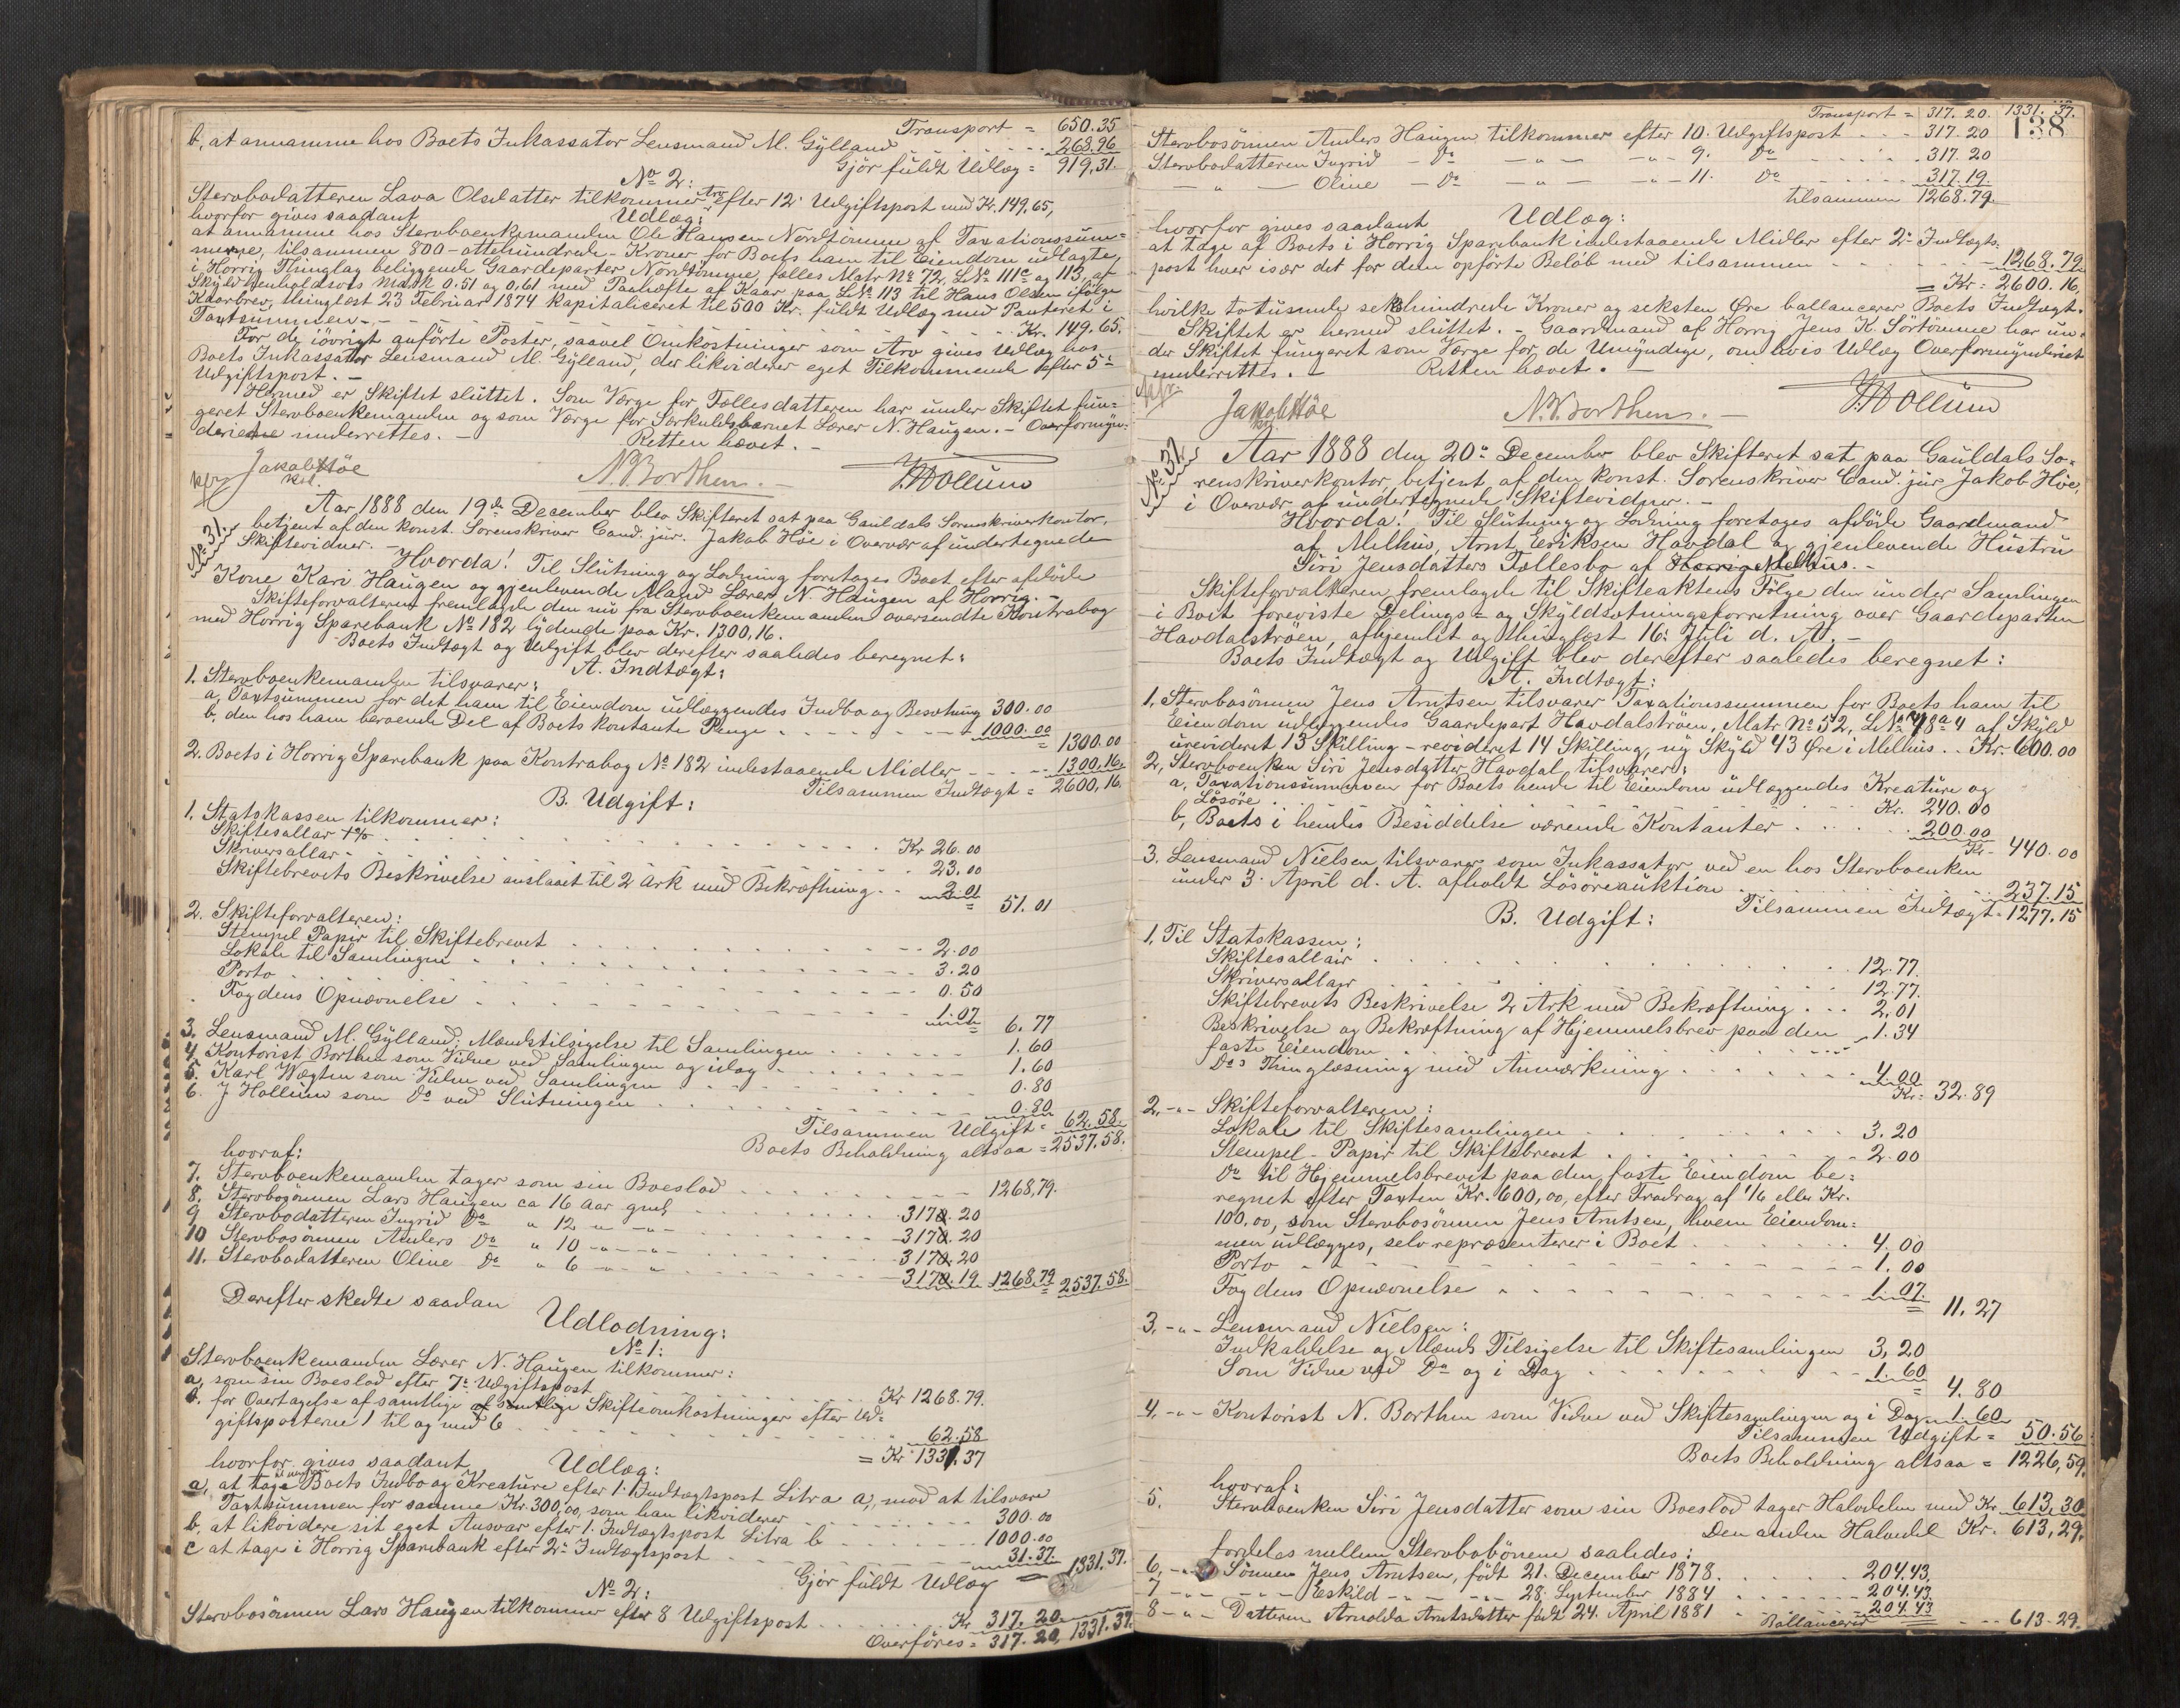 Transport = 650.35
b, at annamme hos Boets Inkassator Lensmand M. Gylland . . . . . . . 268.96
Gjör fuldt Udlæg = 919,31.
No 2:
Stervbodatteren Lava Olsdatter tilkommer Arv efter 12te Udgiftspost med Kr. 149,65,
hvorfor gives saadant Udlæg:
at annamme hos Stervboenkemanden Ole Hansen Nordtömme af Taxationssum=
merne, tilsammen 800 - ottehundrede - Kroner for Boets ham til Eiendom udlagte,
i Horrig Thinglag beliggende Gaardeparter Nordtömme, fælles Matr No 72, L.No 111c og 113, af
Skyld henholdsvis Mark 0.51 og 0.61 med Paahæfte af Kaar paa L.No 113 til Hans Olsen ifölge
Kaarbrev, thinglæst 23 Februar 1874 kapitaliceret til 500 Kr. fuldt Udlæg med Panteret i
Taxtsummen - - - - - - Kr. 149.65.
For de iövrigt anförte Poster, saavel Omkostninger som Arv gives Udlæg hos
Boets Inkassator Lensmand M. Gylland, der likviderer eget Tilkommende efter 5te
Udgiftspost. -
Hermed er Skiftet sluttet. Som Værge for Fællesdatteren har under Skiftet fun-
geret Stervboenkemanden og som Værge for Særkuldsbarnet Lærer N. Haugen. - Overformyn-
deriet underrettes. - Retten hævet. -
Jakob Höe
kst.
N. Borthen. -
J. Hollum
No 31.
Aar 1888 den 19de December blev Skifteret sat paa Gauldals Sorenskriverkontor,
betjent af den konst. Sorenskriver Cand. jur. Jakob Höe i Overvær af undertegnede
Skiftevidner. -
Hvorda! Til Slutning og Lodning foretages Boet efter afdöde
Kone Kari Haugen og gjenlevende Mand Lærer N. Haugen af Horrig. -
Skifteforvalteren fremlagde den nu fra Stervboenkemanden oversendte Kontrabog
med Horrig Sparebank No 182 lydende paa Kr. 1300,16.
Boets Indtægt og Udgift blev derefter saaledes beregnet:
A. Indtægt:
1. Stervboenkemanden tilsvarer:
a, Taxtsummen for det ham til Eiendom udlæggendes Indbo og Besætning 300.00
b, den hos ham beroende Del af Boets kontante Penge . . . . 1000.00
= 1300.00
2. Boets i Horrig Sparebank paa Kontrabog No 182 indestaaende Midler - - - - 1300,16.
Tilsammen Indtægt = 2600,16.
B. Udgift:
1. Statskassen tilkommer:
Skiftesallar 1% . . . . Kr 26.00
Skriversallar . . . . 23.00
Skiftebrevets Beskrivelse anslaaet til 2 Ark med Bekræftning . . 2.01
= 51.01
2. Skifteforvalteren:
Stempel Papir til Skiftebrevet . . . . 2.00
Lokale til Samlingen . . . . 3.20
Porto . . . . 0.50
Fogdens Opnævnelse . . . . 1.07
= 6.77
3. Lensmand M. Gylland: Mændstilsigelse til Samlingen . . . . 1.60
4. Kontorist Borthen som Vidne ved Samlingen og idag . . . . 1.60
5. Karl Wægten som Vidne ved Samlingen . . . . 0.80
6. J Hollum som Do ved Slutningen . . . . 0.80
Tilsammen Udgift = 62.58.
Boets Beholdning altsaa = 2537.58.
hvoraf:
7. Stervboenkemanden tager som sin Boeslod . . . . 1268,79.
8. Stervbosönnen Lars Haugen ca 16 Aar gml. . . . . 317.20
9 Stervbodatteren Ingrid Do " 12 - " - " - . . . . 317.20
10 Stervbosönnen Anders Do " 10 - " - " - . . . . 317.20
11. Stervbodatteren Oline Do " 6 - " - " . . . . 317.19 1268,79 2537.58.
Derefter skedte saadan
Udlodning:
No 1:
Stervboenkemanden Lærer N. Haugen tilkommer:
a, som sin Boeslod efter 7de Udgiftspost . . . . Kr 1268.79.
b. for Overtagelse af samtlige af samtlige Skifteomkostninger efter Ud=
giftsposterne 1 til og med 6 . . . . 62.58
= Kr 1331.37
hvorfor gives saadant Udlæg:
a, at tage Boets Indbo og Kreature efter 1. Indtægtspost Litra a, mod at tilsvare
Taxtsummen for samme Kr. 300,00, som han likviderer . . . . 300.00
b. at likvidere sit eget Ansvar efter 1. Indtægtspost Litra b . . . . 1000.00
c at tage i Horrig Sparebank efter 2den Indtægtspost . . . . 31.37.
Gjör fuldt Udlæg = 1331.37.
No 2:
Stervbosönnen Lars Haugen tilkommer efter 8 Udgiftspost . . . . Kr 317.20
Overföres = 317.20, 1331.37.
138
Transport = 317.20. 1331.37.
Stervbosönnen Anders Haugen tilkommer efter 10. Udgiftspost . . . 317.20
Stervbodatteren Ingrid - Do - " - - " - 9. Do . . . . 317.20
- " - Oline - Do - " - - " - 11. Do . . . . 317.19.
tilsammen 1268.79.
hvorfor gives saadant Udlæg:
at tage af Boets i Horrig Sparebank indestaaende Midler efter 2den Indtægts-
post hver især det for dem opförte Belöb med tilsammen - - - - 1268.79.
= Kr. 2600.16,
hvilke totusinde sekshundrede Kroner og seksten Öre ballancerer Boets Indtægt.
Skiftet er hermed sluttet. - Gaardmand af Horrig Jens K. Sörtömme har un-
der Skiftet fungeret som Værge for de Umyndige, om hvis Udlæg Overformynderiet
underrettes. - Retten hævet. -
Jakob Höe
kst.
N. Borthen. -
J. Hollum
No 37.
Aar 1888 den 20de December blev Skifteret sat paa Gauldals So-
renskriverkontor, betjent af den konst. Sorenskriver Cand. jur Jakob Höe,
i Overvær af undertegnede Skiftevidner. -
Hvorda! Til Slutning og Lodning foretages afdöde Gaardmand
af Melhus, Arnt Eriksen Havdal og gjenlevende Hustru
Siri Jensdatters Fællesbo af Horrig Melhus. -
Skifteforvalteren fremlagde til Skifteaktens Fölge den under Samlingen
i Boet foreviste Delings- og Skyldsætningsforretning over Gaardeparten
Havdalströen, afhjemlet og thinglæst 16de Juli d. A. -
Boets Indtægt og Udgift blev derefter saaledes beregnet:
A. Indtægt:
1, Stervbosönnen Jens Arntsen tilsvarer Taxationssummen for Boets ham til
Eiendom udlæggendes Gaardepart Havdalströen, Matr No 52, L.No 48a4 af Skyld
urevideret 13 Skilling - revideret 14 Skilling, ny Skyld 43 Öre i Melhus . . Kr. 600.00
2, Stervboenken Siri Jensdatter Havdal tilsvarer:
a, Taxationssummen for Boets hende til Eiendom udlæggendes Kreature og
Lösöre . . . . Kr. 240.00
b, Boets i hendes Besiddelse værende Kontanter . . . . 200.00
Kr. 440.00
3. Lensmand Nielsen tilsvarer som Inkassator ved en hos Stervboenken
under 3. April d. A. afholdt Lösöreauktion . . . . 237.15
Tilsammen Indtægt = 1277.15
B. Udgift:
1, Til Statskassen:
Skiftesallair . . . . 12.77.
Skriversallair . . . . 12.77.
Skiftebrevets Beskrivelse 2 Ark med Bekræftning . . . 2,01
Beskrivelse og Bekræftning af Hjemmelsbrev paa den
faste Eiendom . . . . 1.34
Dos Thinglæsning med Anmærkning . . . . 4.00
Kr. 32.89
2, - " - Skifteforvalteren:
Lokale til Skiftesamlingen . . . . 3.20
Stempel-Papir til Skiftebrevet . . . . 2.00
Do til Hjemmelsbrevet paa den faste Eiendom be=
regnet efter Taxten Kr. 600,00, efter Fradrag af 1/6 eller Kr.
100.00, som Stervbosönnen Jens Arntsen, hvem Eiendom=
men udlægges, selv repræsenterer i Boet . . . . 4.00
Porto . . . . 1.00
Fogdens Opnævnelse . . . . 1.07.
= 11.27
3, - " - Lensmand Nielsen:
Indkaldelse og Mænds Tilsigelse til Skiftesamlingen 3,20
Som Vidne ved Do og i Dag . . . . 1.60
= 4.80
4, - " - Kontorist N. Borthen som Vidne ved Skiftesamlingen og i Dag 1.60
Tilsammen Udgift = 50.56
Boets Beholdning altsaa = 1226,59.
hvoraf:
5. Stervboenken Siri Jensdatter som sin Boeslod tager Halvdelen med Kr. 613,30
Den anden Halvdel Kr. 613,29.
fordeles mellem Stervbobörnene saaledes:
6, - " - Sönnen Jens Arntsen, födt 21. December 1878. . . . . 204.43.
7 - " - - " - Eskild - " - - " - 28. September 1884 . . . . 204.43.
8 - " - Datteren Arnolda Arntsdatter födt 24. April 1881 . . . . 204.43
Ballancerer . . . 613.29.